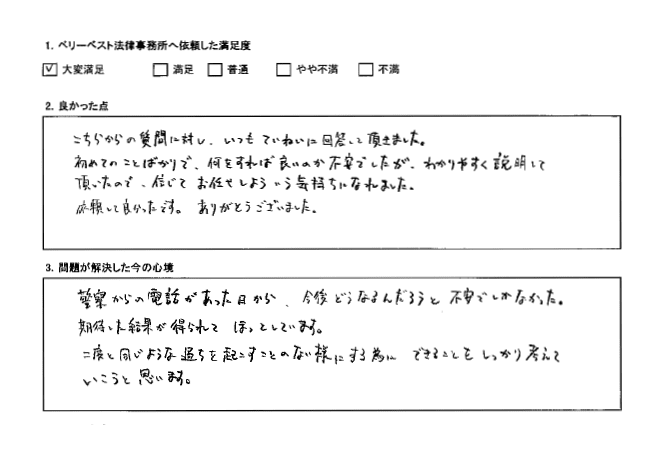 1. ベリーベスト法律事務所へ依頼した満足度
☑ 大変満足 □ 満足 □ 普通 □ やや不満 □ 不満
2. 良かった点
こちらからの質問に対し、いつもていねいに回答して頂きました。
初めてのことばかりで、何をすれば良いのか不安でしたが、わかりやすく説明して
頂いたので、信じてお任せしようという気持ちになれました。
依頼して良かったです。ありがとうございました。
3. 問題が解決した今の心境
警察からの電話があった日から、今後どうなるんだろうと不安でしかなかった。
期待した結果が得られてほっとしています。
二度と同じような過ちを起こすことのない様にする為にできることをしっかり考えて
いこうと思います。